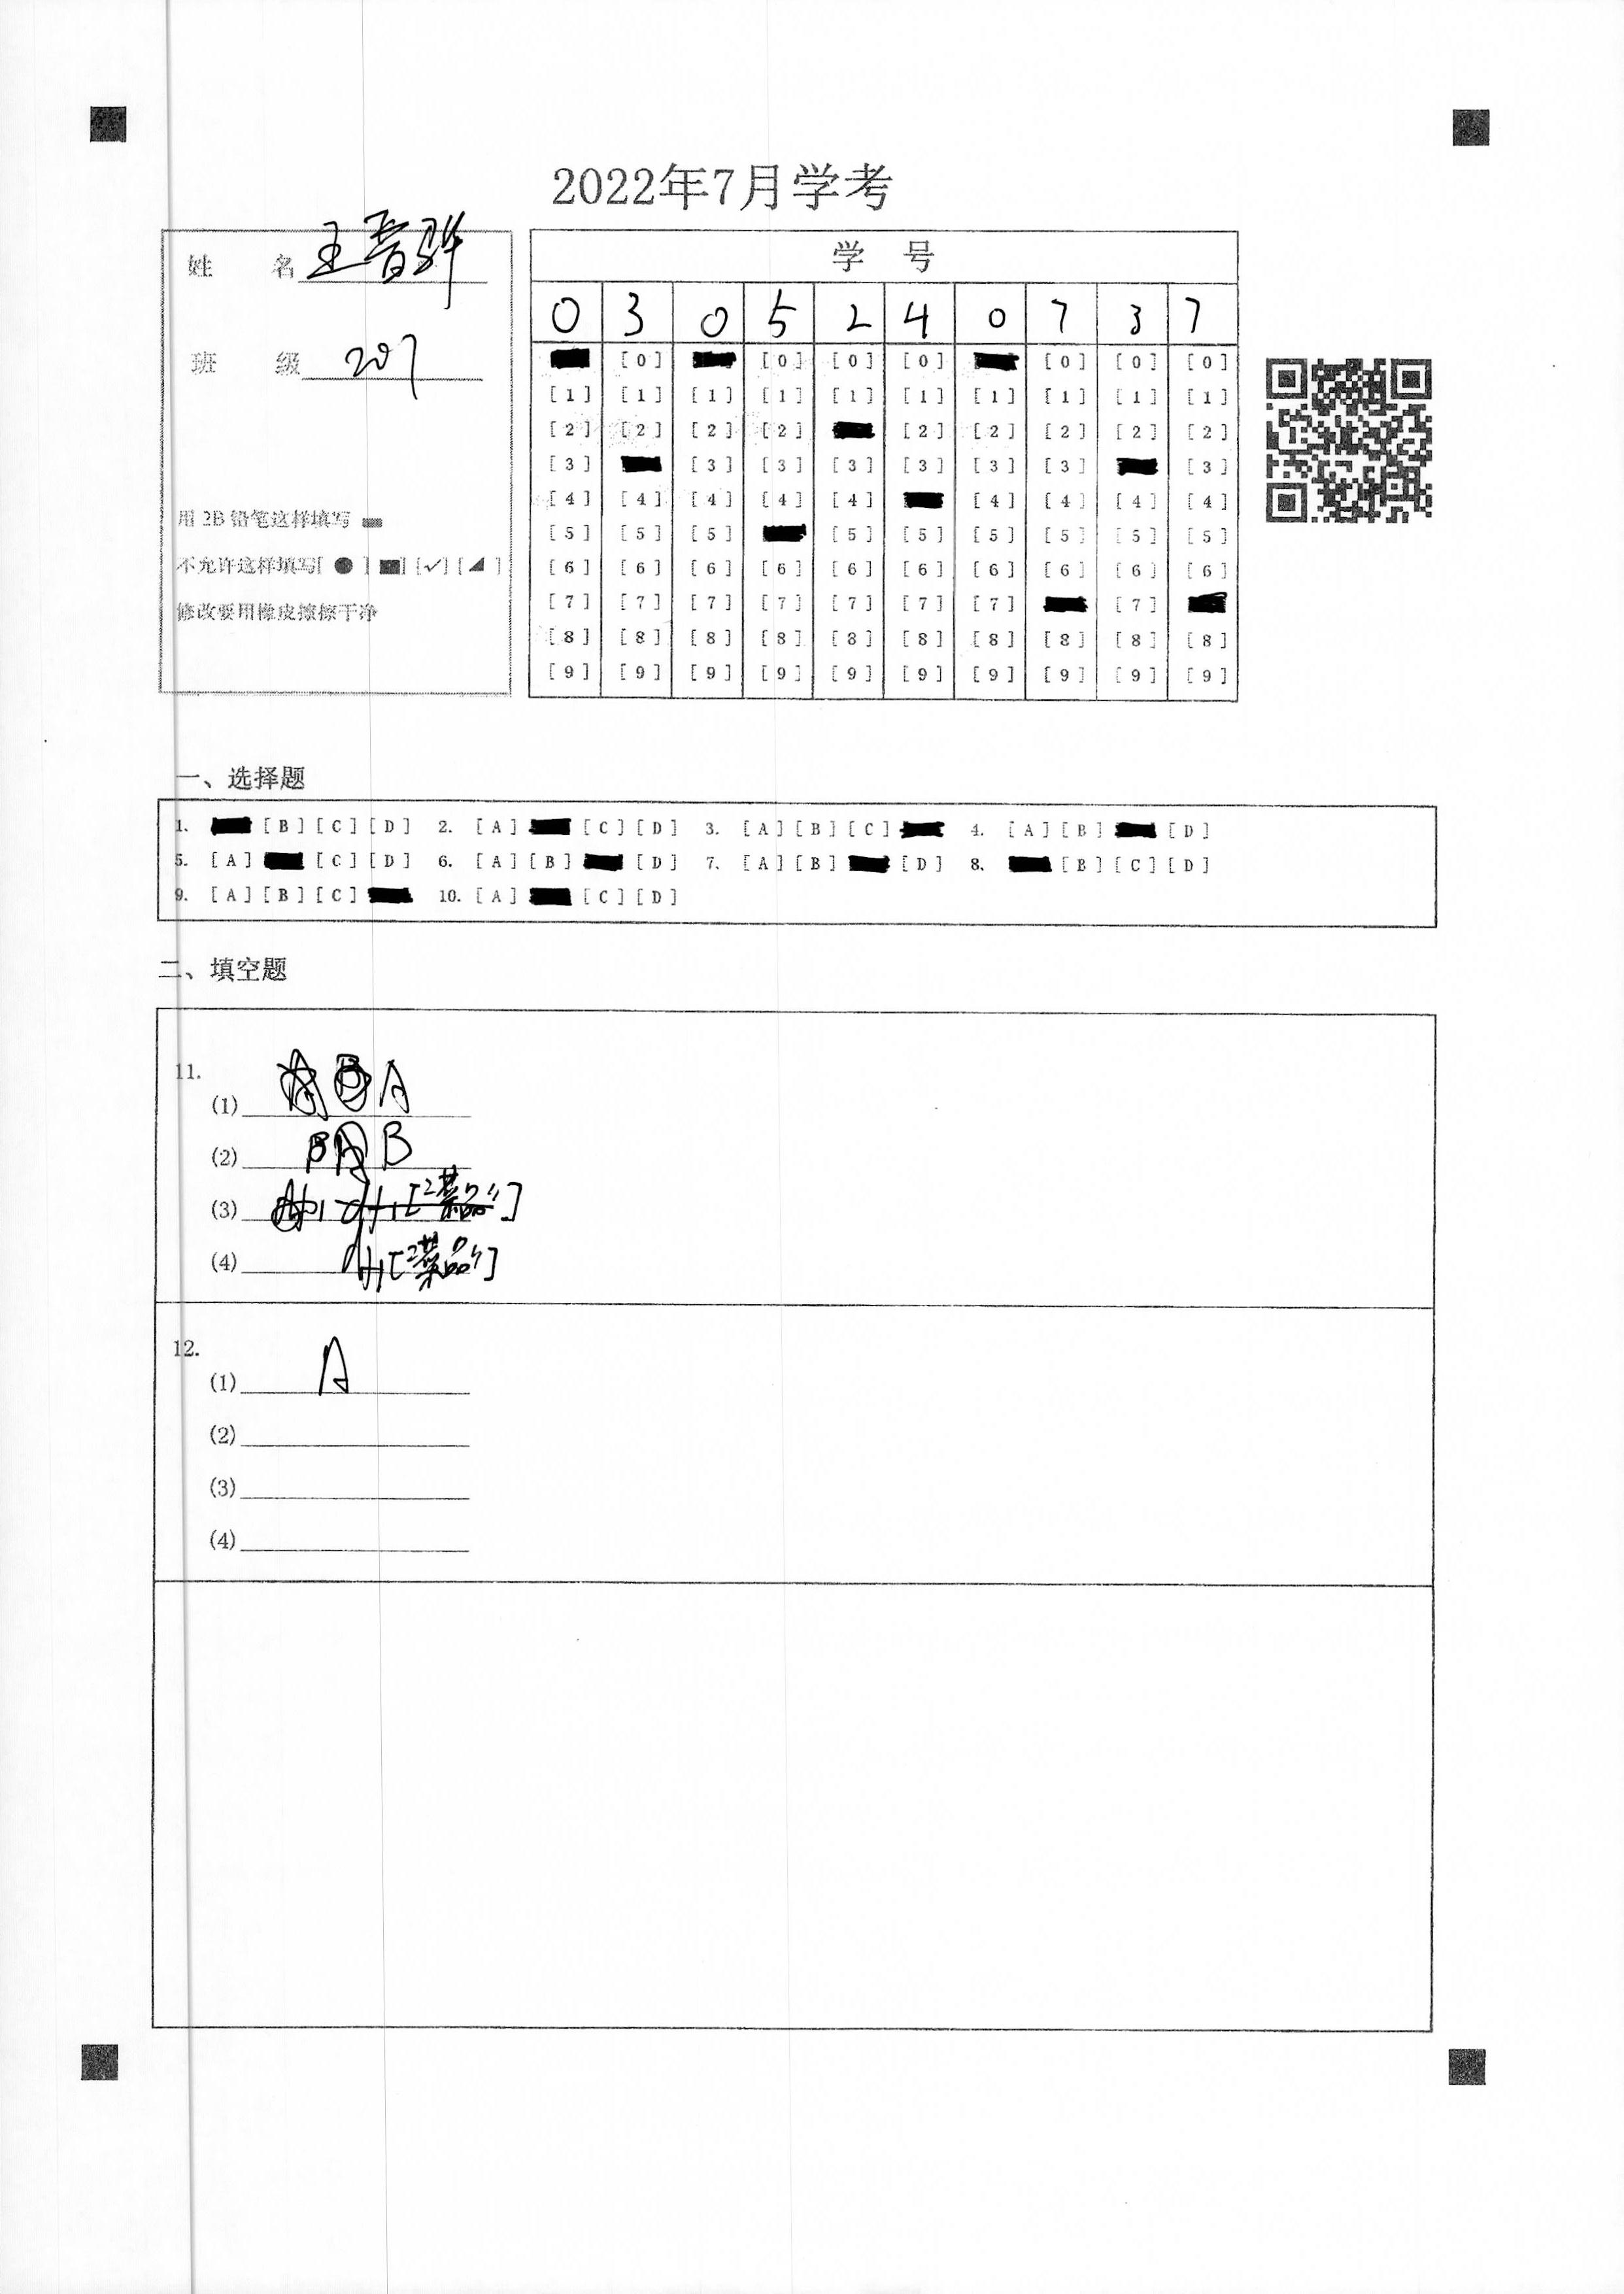 2022年7月学考
姓 名 王晋骅
班 级 207
用 2B 铅笔这样填写
不允许这样填写[ ● ] [■] [✓] [◢ ]
修改要用橡皮擦擦干净
学 号
0 3 0 5 2 4 0 7 3 7
[0] [0] [0] [0] [0] [0] [0]
[1] [1] [1] [1] [1] [1] [1] [1] [1] [1]
[2] [2] [2] [2] [2] [2] [2] [2] [2]
[3] [3] [3] [3] [3] [3] [3] [3]
[4] [4] [4] [4] [4] [4] [4] [4] [4]
[5] [5] [5] [5] [5] [5] [5] [5] [5]
[6] [6] [6] [6] [6] [6] [6] [6] [6] [6]
[7] [7] [7] [7] [7] [7] [7] [7]
[8] [8] [8] [8] [8] [8] [8] [8] [8] [8]
[9] [9] [9] [9] [9] [9] [9] [9] [9] [9]
一、选择题
1. [B] [C] [D] 2. [A] [C] [D] 3. [A] [B] [C] 4. [A] [B] [D]
5. [A] [C] [D] 6. [A] [B] [D] 7. [A] [B] [D] 8. [B] [C] [D]
9. [A] [B] [C] 10. [A] [C] [D]
二、填空题
11.
(1) A
(2) B
(3)
(4) df1["菜品"]
12.
(1) A
(2)
(3)
(4)